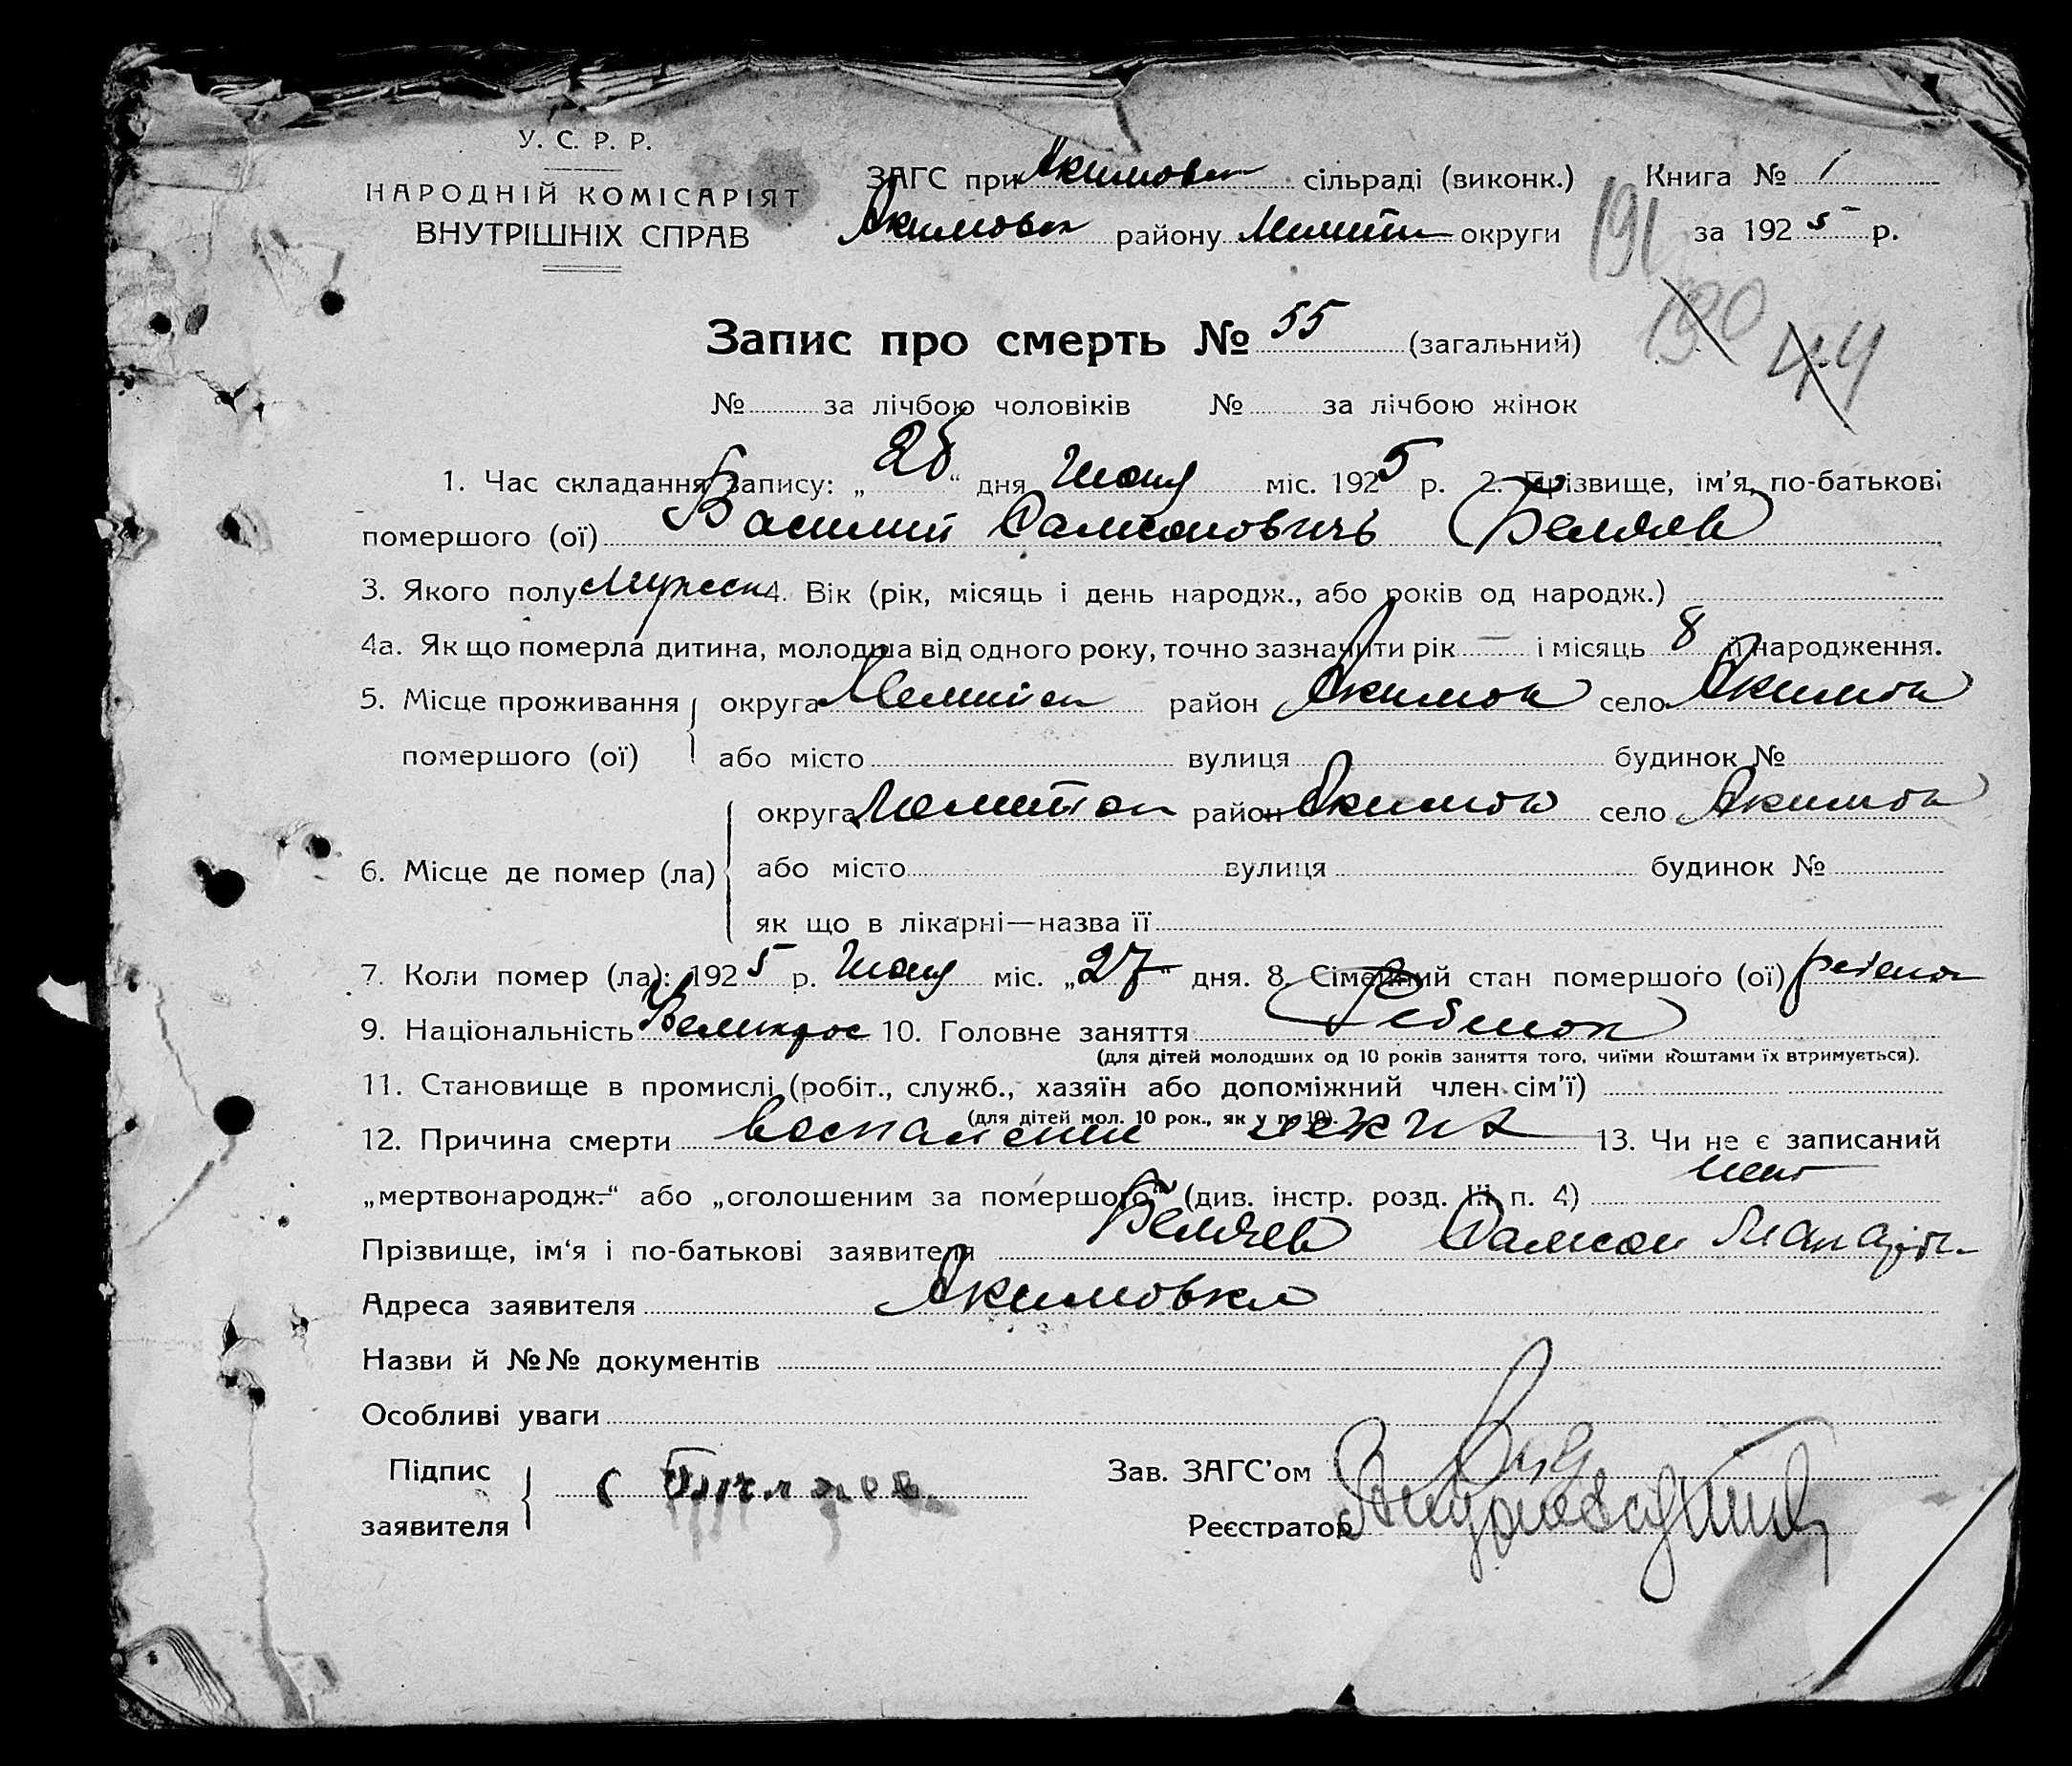 У. С. Р. Р.
НАРОДНІЙ КОМІСАРІЯТ
ВНУТРІШНІХ СПРАВ
ЗАГС при Акимовск сільраді (виконк.) Книга № 1
Акимовск району Мелит округи за 1925 р.
191
190
44
Запис про смерть № 55 (загальний)
№ за лічбою чоловіків № за лічбою жінок
1. Час складання запису: „28“ дня Июня міс. 1925 р. 2. Прізвище, ім'я, по-батькові
помершого (ої) Василий Самсонович Беляев
3. Якого полу мужеск 4. Вік (рік, місяць і день народж., або років од народж.)
4а. Як що померла дитина, молодша від одного року, точно зазначити рік — і місяць 8 її народження.
5. Місце проживання округа Мелитоп район Акимов село Акимов
помершого (ої) або місто вулиця будинок №
округа Мелитоп район Акимов село Акимов
6. Місце де помер (ла) або місто вулиця будинок №
як що в лікарні—назва її
7. Коли помер (ла): 1925 р. Июня міс. „27“ дня. 8. Сімейний стан помершого (ої) ребенок
9. Національність Великорос 10. Головне заняття Ребенок
(для дітей молодших од 10 років заняття того, чиїми коштами їх втримується).
11. Становище в промислі (робіт., служб., хазяїн або допоміжний член сім'ї)
(для дітей мол. 10 рок., як у п. 10).
12. Причина смерти воспаление 13. Чи не є записаний
„мертвонародж.“ або „оголошеним за помершого“ (див. інстр. розд. III п. 4) нет
Прізвище, ім'я і по-батькові заявителя Беляев Самсон
Адреса заявителя Акимовка
Назви й №№ документів
Особливі уваги
Підпис
заявителя
Зав. ЗАГС'ом
Реєстратор